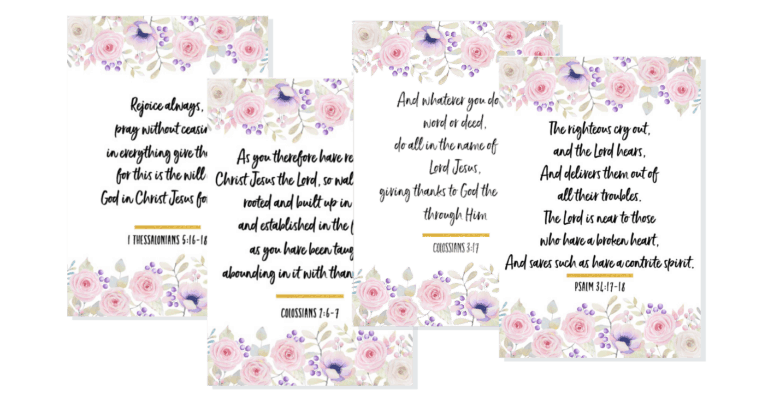 Rejoice always,
pray without ceasin
in everything give th
for this is the will
God in Christ Jesus fo
1 THESSALONIANS 5:16-18
As you therefore have re
Christ Jesus the Lord, so wal
rooted and built up in
and established in the
as you have been taug
abounding in it with than
COLOSSIANS 2:6-7
And whatever you do
word or deed,
do all in the name of
Lord Jesus,
giving thanks to God the
through Him
COLOSSIANS 3:17
The righteous cry out,
and the Lord hears,
And delivers them out of
all their troubles.
The Lord is near to those
who have a broken heart,
And saves such as have a contrite spirit.
PSALM 34:17-18